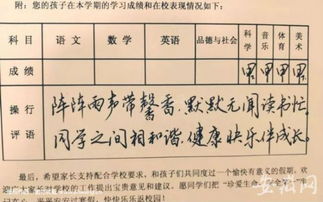 附:您的孩子在本学期的学习成绩和在校表现情况如下:
科目 语文 数学 英语 品德与社会 科学 音乐 体育 美术
成绩 甲 甲 甲 甲
操行评语 阵阵雨声带馨香,默默无闻读书忙。
同学之间相和谐,健康快乐伴成长。
最后,希望家长支持配合学校要求,和孩子们共同度过一个愉快有意义的假期,欢
迎广大家长对学校的工作提出宝贵意见和建议。愿同学们把“珍爱生命
快快乐乐返校园!
安徽网